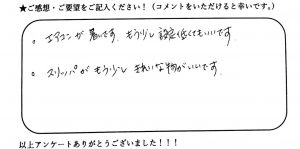 ★ご感想・ご要望をご記入ください！（コメントをいただけると幸いです。）
。エアコンが暑いです。もう少し設定低くてもいいです
。スリッパがもう少しきれいな物がいいです。
以上アンケートありがとうございました！！！